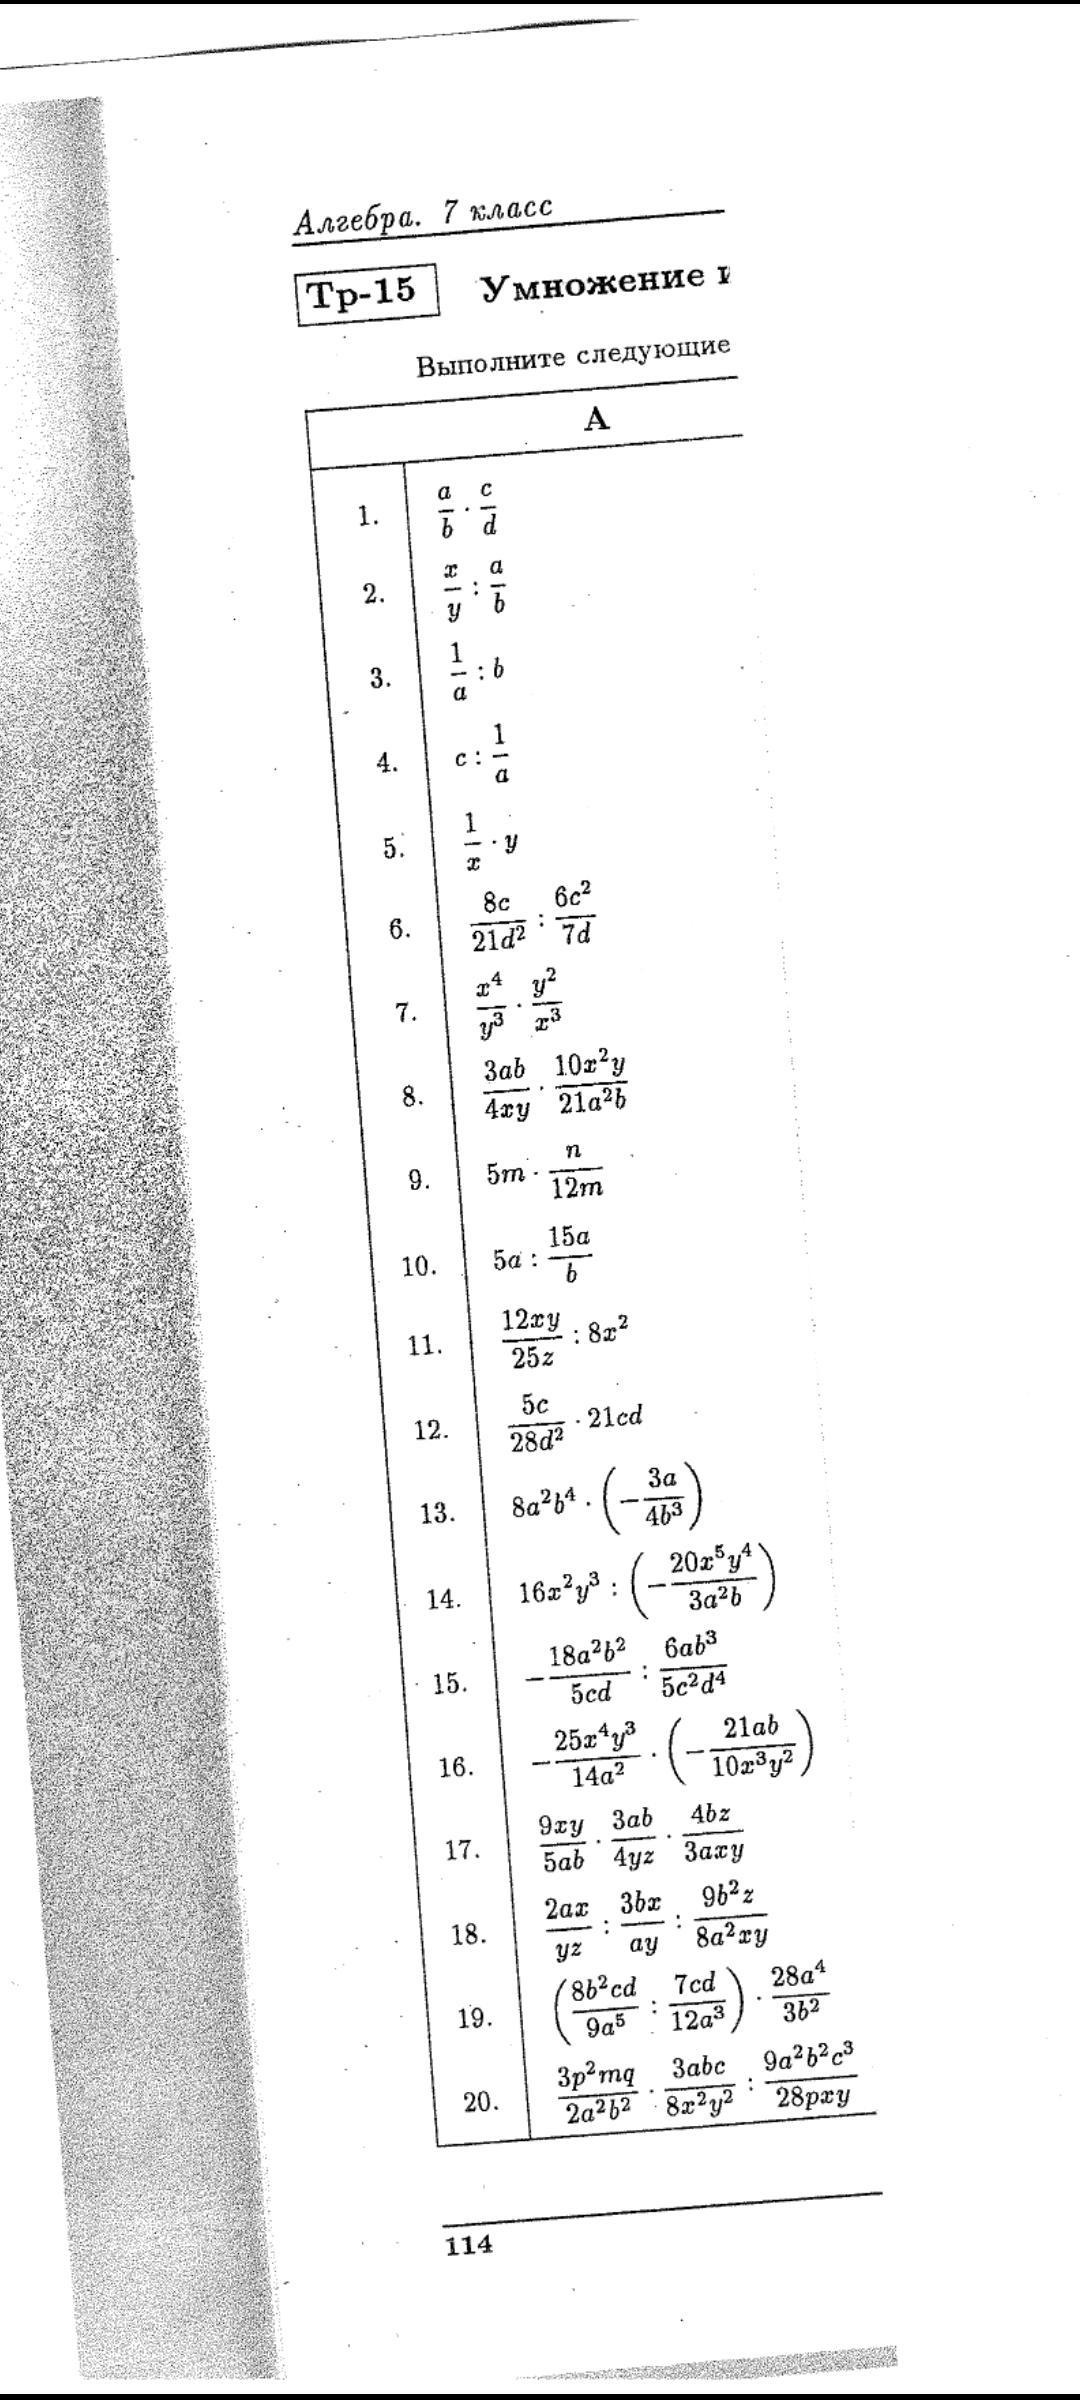 Алгебра. 7 класс
Тр-15 Умножение и
Выполните следующие
A
1. \frac{a}{b} \cdot \frac{c}{d}
2. \frac{x}{y} : \frac{a}{b}
3. \frac{1}{a} : b
4. c : \frac{1}{a}
5. \frac{1}{x} \cdot y
6. \frac{8c}{21d^2} : \frac{6c^2}{7d}
7. \frac{x^4}{y^3} \cdot \frac{y^2}{x^3}
8. \frac{3ab}{4xy} \cdot \frac{10x^2y}{21a^2b}
9. 5m \cdot \frac{n}{12m}
10. 5a : \frac{15a}{b}
11. \frac{12xy}{25z} : 8x^2
12. \frac{5c}{28d^2} \cdot 21cd
13. 8a^2b^4 \cdot \left(-\frac{3a}{4b^3}\right)
14. 16x^2y^3 : \left(-\frac{20x^5y^4}{3a^2b}\right)
15. -\frac{18a^2b^2}{5cd} : \frac{6ab^3}{5c^2d^4}
16. -\frac{25x^4y^3}{14a^2} \cdot \left(-\frac{21ab}{10x^3y^2}\right)
17. \frac{9xy}{5ab} \cdot \frac{3ab}{4yz} \cdot \frac{4bz}{3axy}
18. \frac{2ax}{yz} : \frac{3bx}{ay} : \frac{9b^2z}{8a^2xy}
19. \left(\frac{8b^2cd}{9a^5} : \frac{7cd}{12a^3}\right) \cdot \frac{28a^4}{3b^2}
20. \frac{3p^2mq}{2a^2b^2} \cdot \frac{3abc}{8x^2y^2} : \frac{9a^2b^2c^3}{28pxy}
114